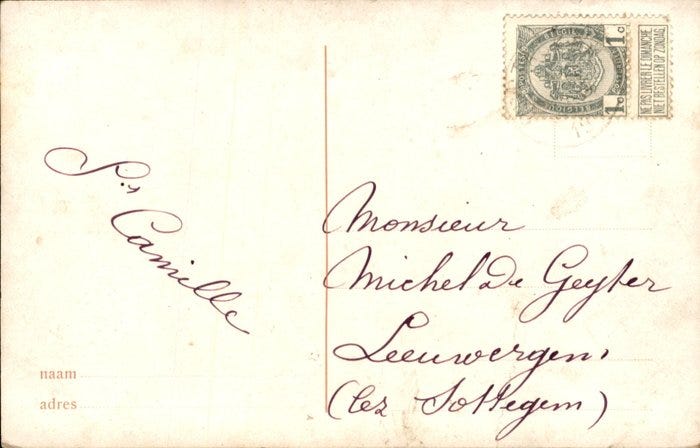 1c
BELGIË
BELGIQUE
1c
NE PAS LIVRER LE DIMANCHE
NIET BESTELLEN OP ZONDAG
Camille
Monsieur
Michel De Geyter
Leeuwergem
(lez Sottegem)
naam
adres